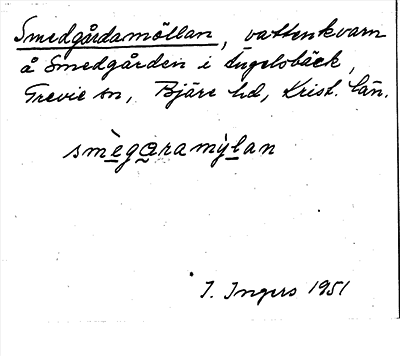 Smedgårdamöllan, vattenkvarn
å Smedgården i Ängelsbäck,
Grevie sn, Bjäre hd, Krist. län.
smègaramỳlan
I. Ingers 1951